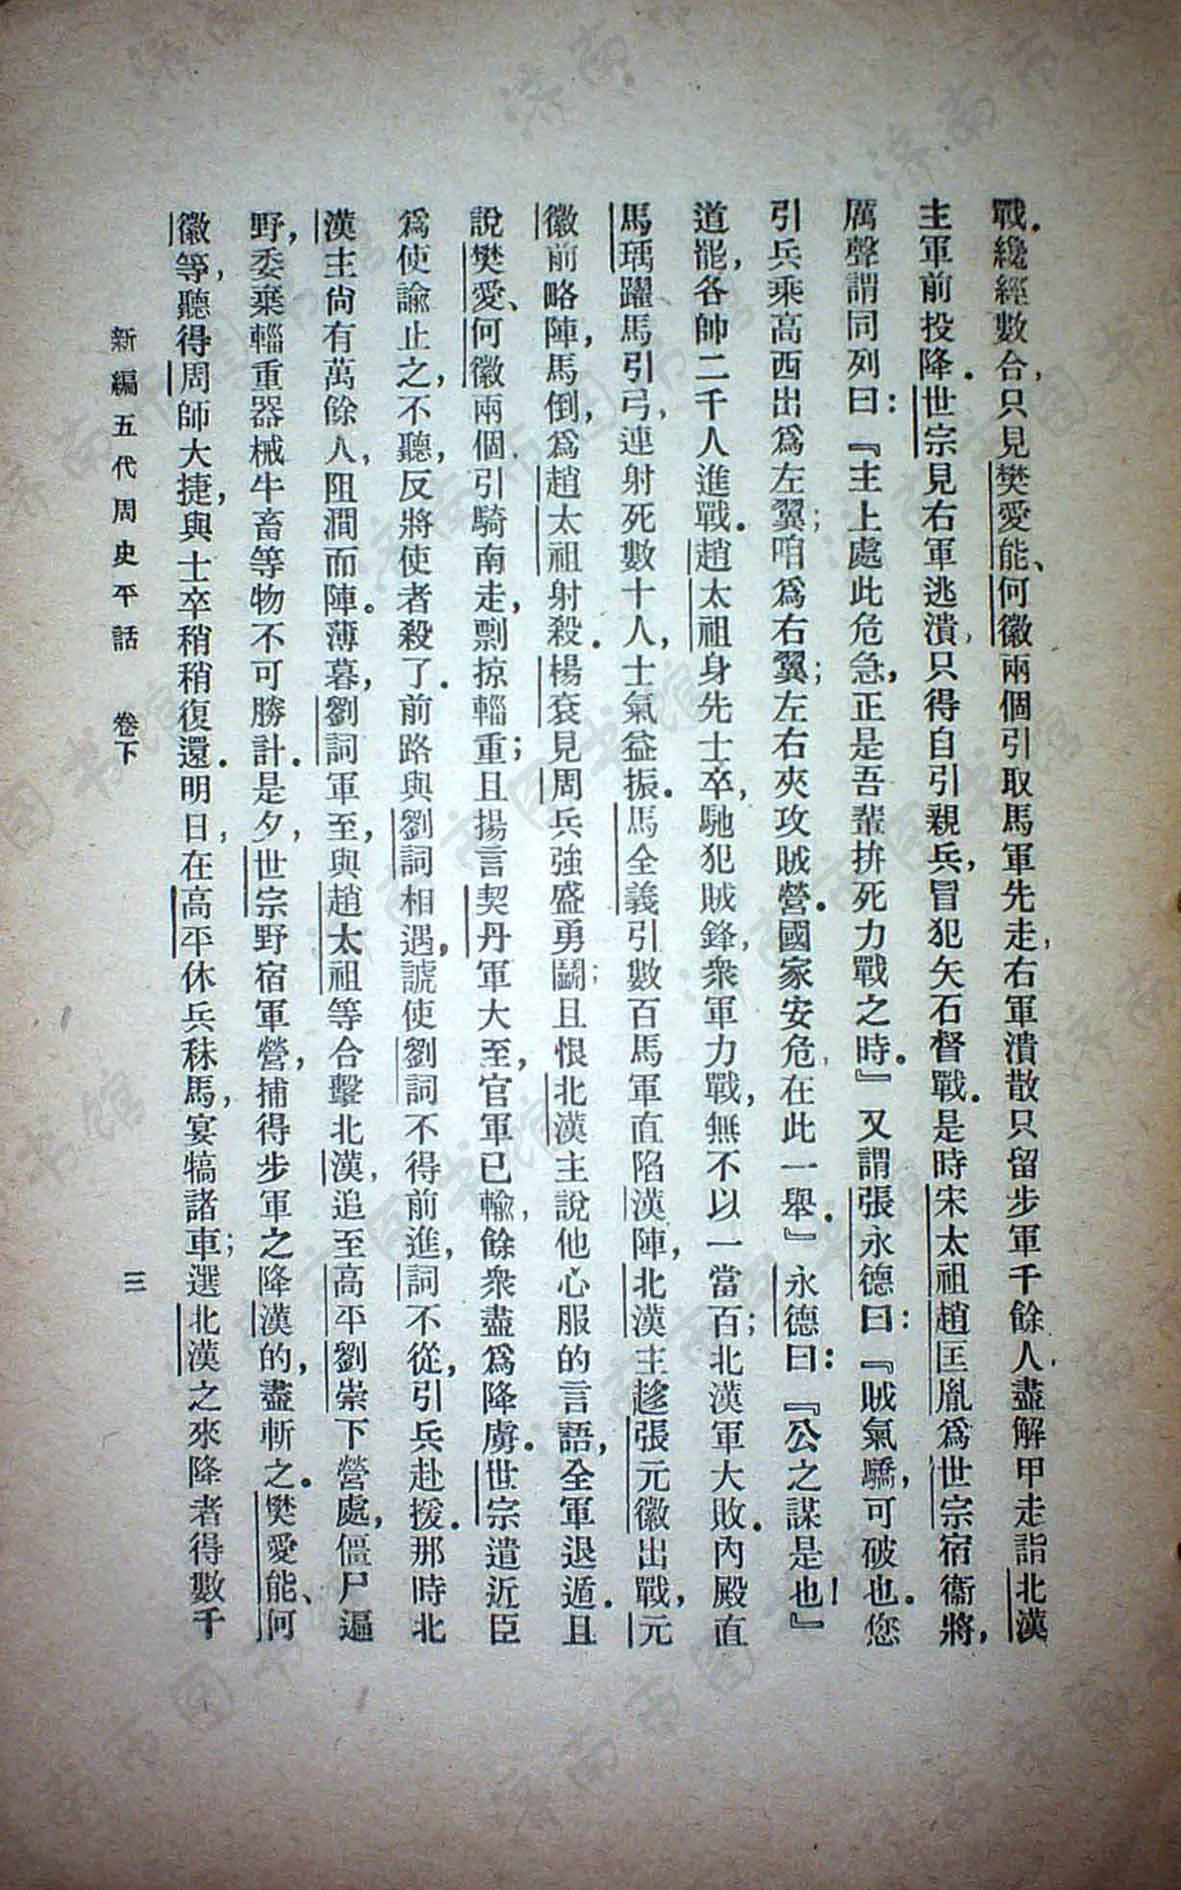 戰。纔經數合，只見樊愛能、何徽兩個引取馬軍先走，右軍潰散只留步軍千餘人，盡解甲走詣北漢
主軍前投降。世宗見右軍逃潰，只得自引親兵，冒犯矢石督戰。是時宋太祖趙匡胤爲世宗宿衞將，
厲聲謂同列曰：『主上處此危急，正是吾輩拚死力戰之時。』又謂張永德曰：『賊氣驕，可破也。您
引兵乘高西出爲左翼；咱爲右翼；左右夾攻賊營。國家安危，在此一舉。』永德曰：『公之謀是也！』
道罷，各帥二千人進戰。趙太祖身先士卒，馳犯賊鋒，衆軍力戰，無不以一當百；北漢軍大敗。內殿直
馬瑀躍馬引弓，連射死數十人，士氣益振。馬全義引數百馬軍直陷漢陣，北漢主趁張元徽出戰，元
徽前略陣，馬倒，爲趙太祖射殺。楊袞見周兵強盛勇鬭；且恨北漢主說他心服的言語，全軍退遁。且
說樊愛、何徽兩個，引騎南走，剽掠輜重；且揚言契丹軍大至，官軍已輸，餘衆盡爲降虜。世宗遣近臣
爲使諭止之，不聽，反將使者殺了。前路與劉詞相遇，謊使劉詞不得前進，詞不從，引兵赴援。那時北
漢主尙有萬餘人，阻澗而陣。薄暮，劉詞軍至，與趙太祖等合擊北漢，追至高平劉崇下營處，僵尸遍
野，委棄輜重器械牛畜等物不可勝計。是夕，世宗野宿軍營，捕得步軍之降漢的，盡斬之。樊愛能、何
徽等，聽得周師大捷，與士卒稍稍復還。明日，在高平休兵秣馬，宴犒諸車；選北漢之來降者得數千
新編五代周史平話　卷下　三